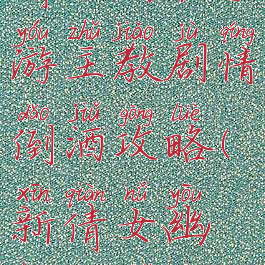 yóu zhǔ jiào jù qíng
游主教剧情
dào jiǔ gōng lüè
倒酒攻略(
xīn qiàn nǚ yōu
新倩女幽